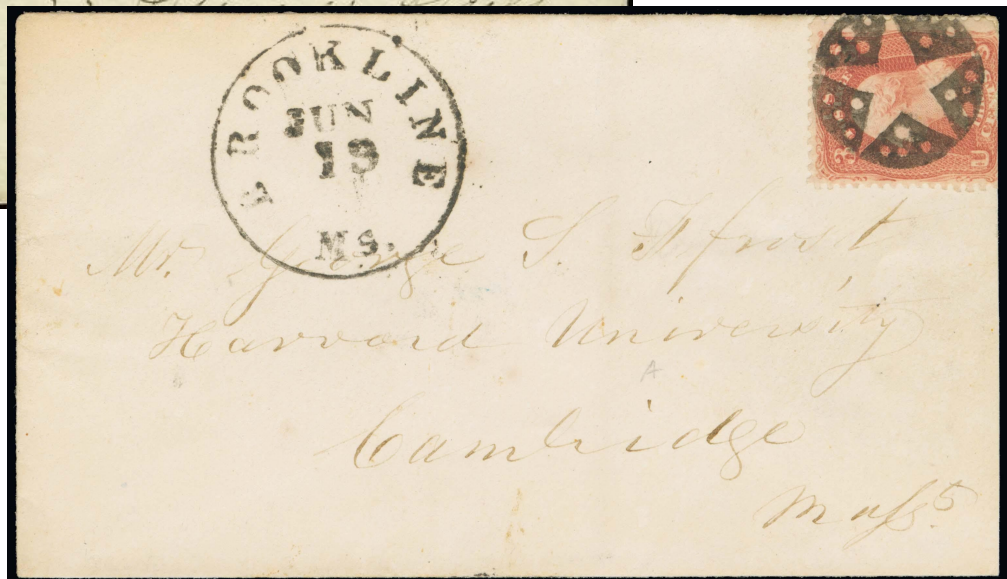 BROOKLINE
JUN
13
MS.
Mr. George S. Ffrost
Harvard University
A
Cambridge
Mass.